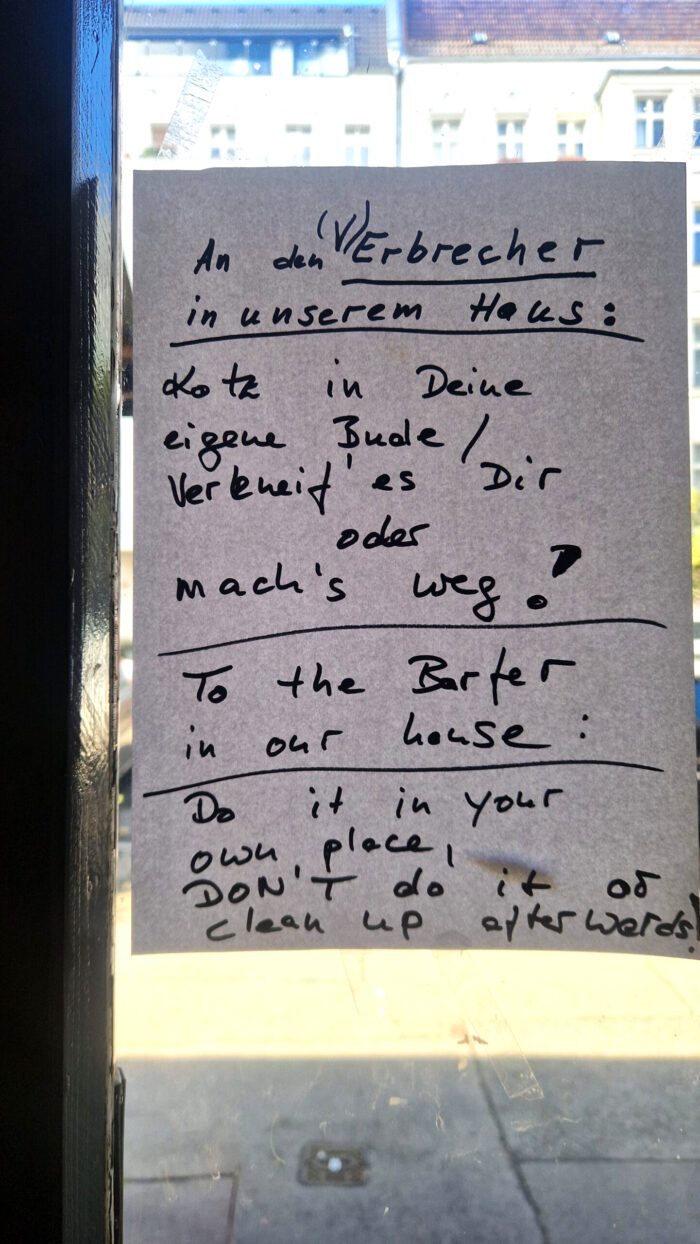 An den (V)Erbrecher
in unserem Haus:
Kotz in Deine
eigene Bude/
Verkneif' es Dir
oder
mach's weg!
To the Barfer
in our house:
Do it in your
own place,
DON'T do it or
clean up afterwards!